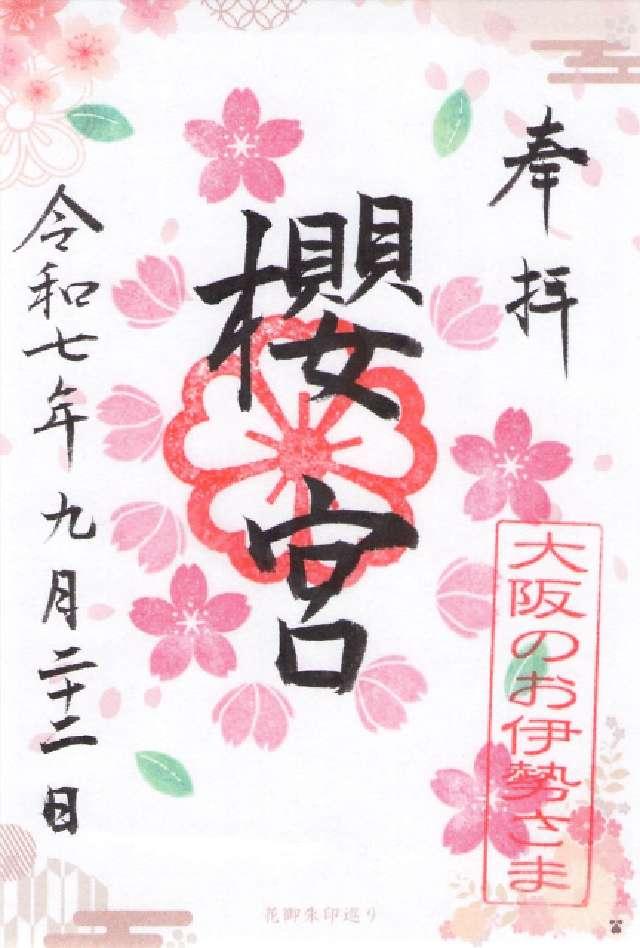 奉拝
大阪のお伊勢さま
櫻宮
令和七年九月二十二日
花御朱印巡り